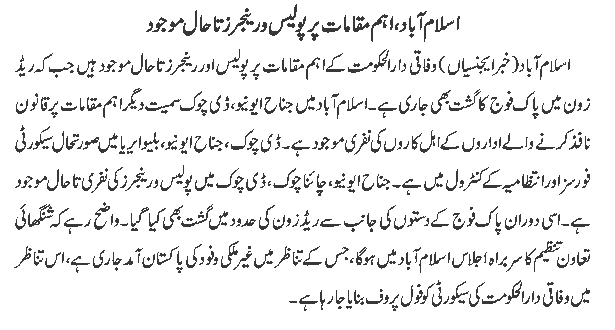 اسلام آباد، اہم مقامات پر پولیس ورینجرز تاحال موجود
اسلام آباد (خبر ایجنسیاں) وفاقی دارالحکومت کے اہم مقامات پر پولیس اور رینجرز تاحال موجود ہیں جب کہ ریڈ
زون میں پاک فوج کا گشت بھی جاری ہے۔ اسلام آباد میں جناح ایونیو، ڈی چوک سمیت دیگر اہم مقامات پر قانون
نافذ کرنے والے اداروں کے اہل کاروں کی نفری موجود ہے۔ ڈی چوک، جناح ایونیو، بلیو ایریا میں صورتحال سیکورٹی
فورسز اور انتظامیہ کے کنٹرول میں ہے۔ جناح ایونیو، چائنا چوک، ڈی چوک میں پولیس ورینجرز کی نفری تاحال موجود
ہے۔ اسی دوران پاک فوج کے دستوں کی جانب سے ریڈ زون کی حدود میں گشت بھی کیا گیا۔ واضح رہے کہ شنگھائی
تعاون تنظیم کا سربراہ اجلاس اسلام آباد میں ہوگا، جس کے تناظر میں غیر ملکی وفود کی پاکستان آمد جاری ہے، اس تناظر
میں وفاقی دارالحکومت کی سیکورٹی کو فول پروف بنایا جا رہا ہے۔